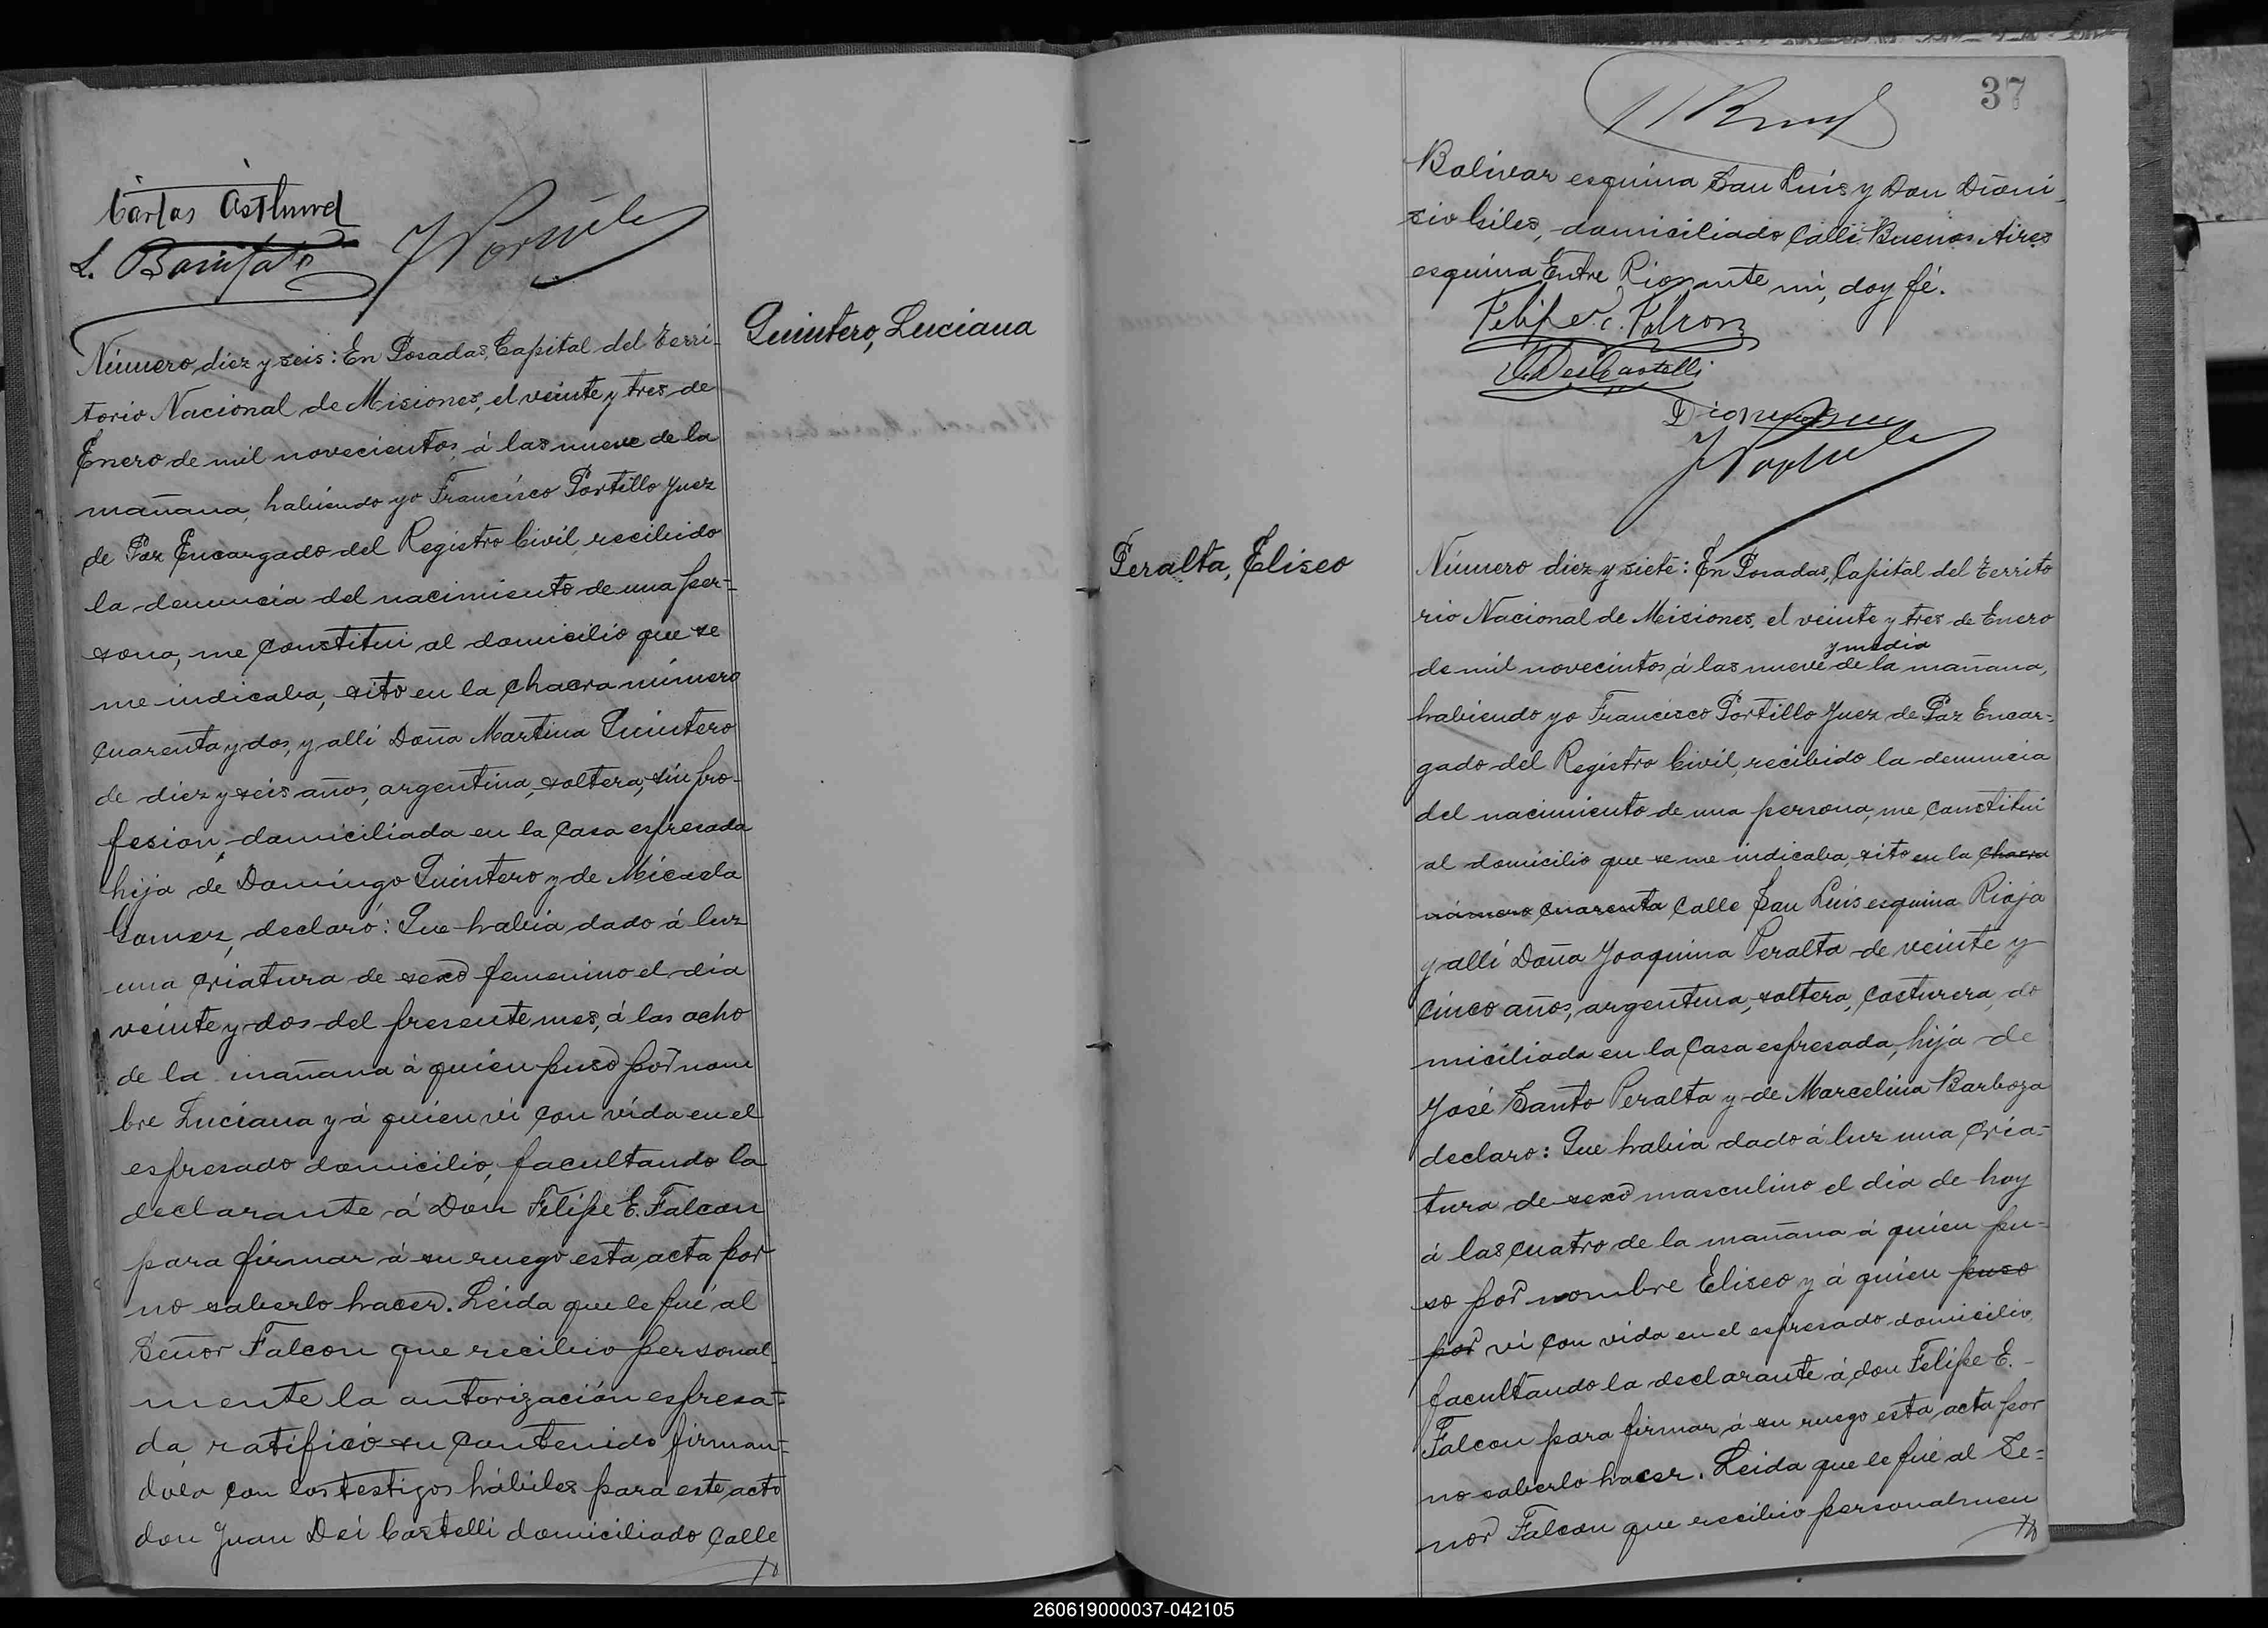 Carlos
L. Bonifato
Quintero, Luciana
Número diez y seis: En Posadas, Capital del Terri-
torio Nacional de Misiones, el veinte y tres de
Enero de mil novecientos, á las nueve de la
mañana, habiendo yo Francisco Portillo Juez
de Paz Encargado del Registro Civil, recibido
la denuncia del nacimiento de una per-
sona, me constitui al domicilio que se
me indicaba, sito en la Chacra número
cuarenta y dos, y allí Doña Martina Quintero
de diez y seis años, argentina, soltera, sin pro-
fesion, domiciliada en la Casa espresada
hija de Domingo Quintero y de Micaela
Gomez, declaró: Que habia dado á luz
una criatura de sexo femenino el dia
veinte y dos del presente mes, á las ocho
de la mañana á quien puso por nom
bre Luciana y á quien vi con vida en el
espresado domicilio, facultando la
declarante á Don Felipe E. Falcon
para firmar á su ruego esta acta por
no saberlo hacer. Leida que le fué al
Señor Falcon que recibio personal
mente la autorización espresa-
da, ratificó su contenido firman-
dola con los testigos hábiles para este acto
don Juan Dei Castelli domiciliado Calle
37
Bolivar esquina San Luis y Don Dioni-
sio Giles, domiciliado Calle Buenos Aires
esquina Entre Rios ante mi, doy fé.
Felipe E. Falcon
J. Dei Castelli
Peralta, Eliseo
Número diez y siete: En Posadas, Capital del Territo
rio Nacional de Misiones, el veinte y tres de Enero
y media
de mil novecintos, á las nueve de la mañana,
habiendo yo Francisco Portillo Juez de Paz Encar-
gado del Registro Civil, recibido la denuncia
del nacimiento de una persona, me constitui
al domicilio que se me indicaba, sito en la Chacra
número cuarenta Calle San Luis esquina Rioja
y allí Doña Joaquina Peralta de veinte y
cinco años, argentina, soltera, costurera, do
miciliada en la Casa espresada, hija de
José Santo Peralta y de Marcelina Barboza
declaro: Que habia dado á luz una cria-
tura de sexo masculino el dia de hoy
á las cuatro de la mañana á quien pu-
so por nombre Eliseo y á quien puso
por vi con vida en el espresado domicilio,
facultando la declarante á don Felipe E.
Falcon para firmar á su ruego esta acta por
no saberlo hacer. Leida que le fué al Se-
ñor Falcon que recibio personalmen
260619000037-042105